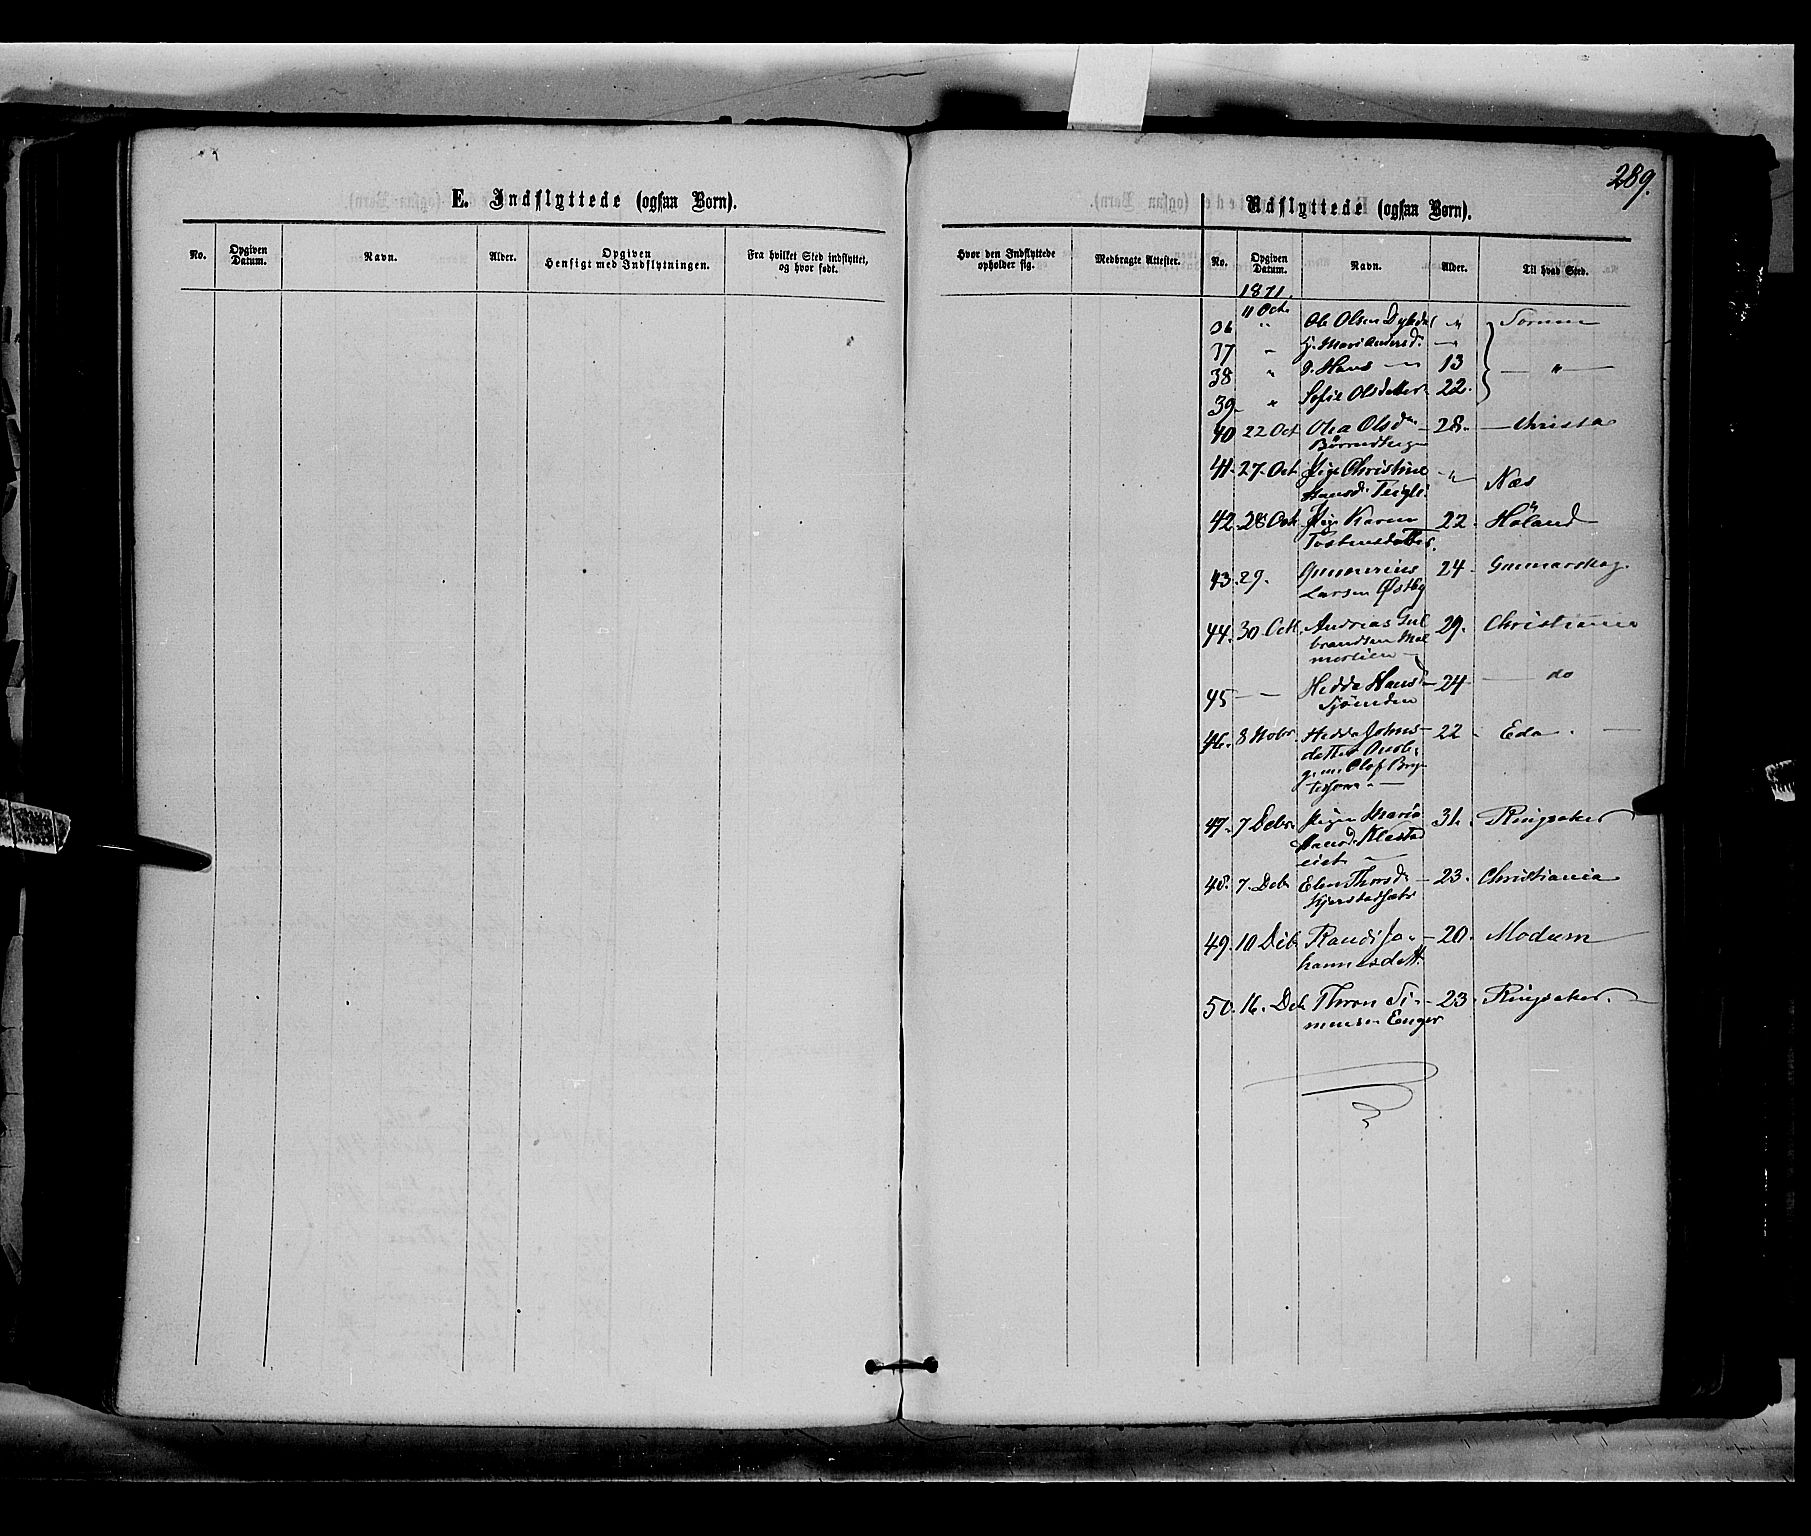 289.
E. Indflyttede (ogsaa Børn).
Udflyttede (ogsaa Børn).
No. Opgiven Datum. Navn. Alder. Opgiven Hensigt med Indflytningen. Fra hvilket Sted indflyttet, og hvor født.
Hvor den Indflyttede opholder sig. Medbragte Attester. No. Opgiven Datum. Navn. Alder. Til hvad Sted.
1871.
11 Oct
36 " Ole Olsen "
37 " Mari Andersd. "
38 " Hans — 13 — " —
39 " Sofie Olsdatter 22.
40 22 Oct Olea Olsd — 28. — Christa
41. 27. Oct Pige Christine "
Hansd. Næs
42. 28 Oct Pige Karen 22. Høland
Tostensdatter.
43. 29. Gunnerius 24. Gunnarskog.
Larsen Østby
44. 30 Oct. Andreas Gul 29. Christiania
brandsen Mal
merlien
45 — — Hedda Hansd — 24 — do
46. 8 Nobr. Hedda Johns- 22 Eda.
datter
g. m. Olof Bryn
47. 7 Debr. Pigen Maria 31. Ringsaker
Hansd. Klestad
eiet
48. 7. Deb Elen Thorsd. — 23. Christiania
Kjerstadsætr
49. 10 Deb Randi Jo- 20. Modum
hannesdatt.
50. 16. Deb Thron Si- 23. Ringsaker.
mensen Enger